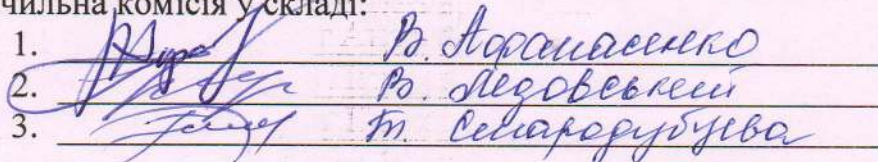 чильна комісія у складі:
1. В. Афанасенко
2. В. Ледовський
3. Т. Стародубцева